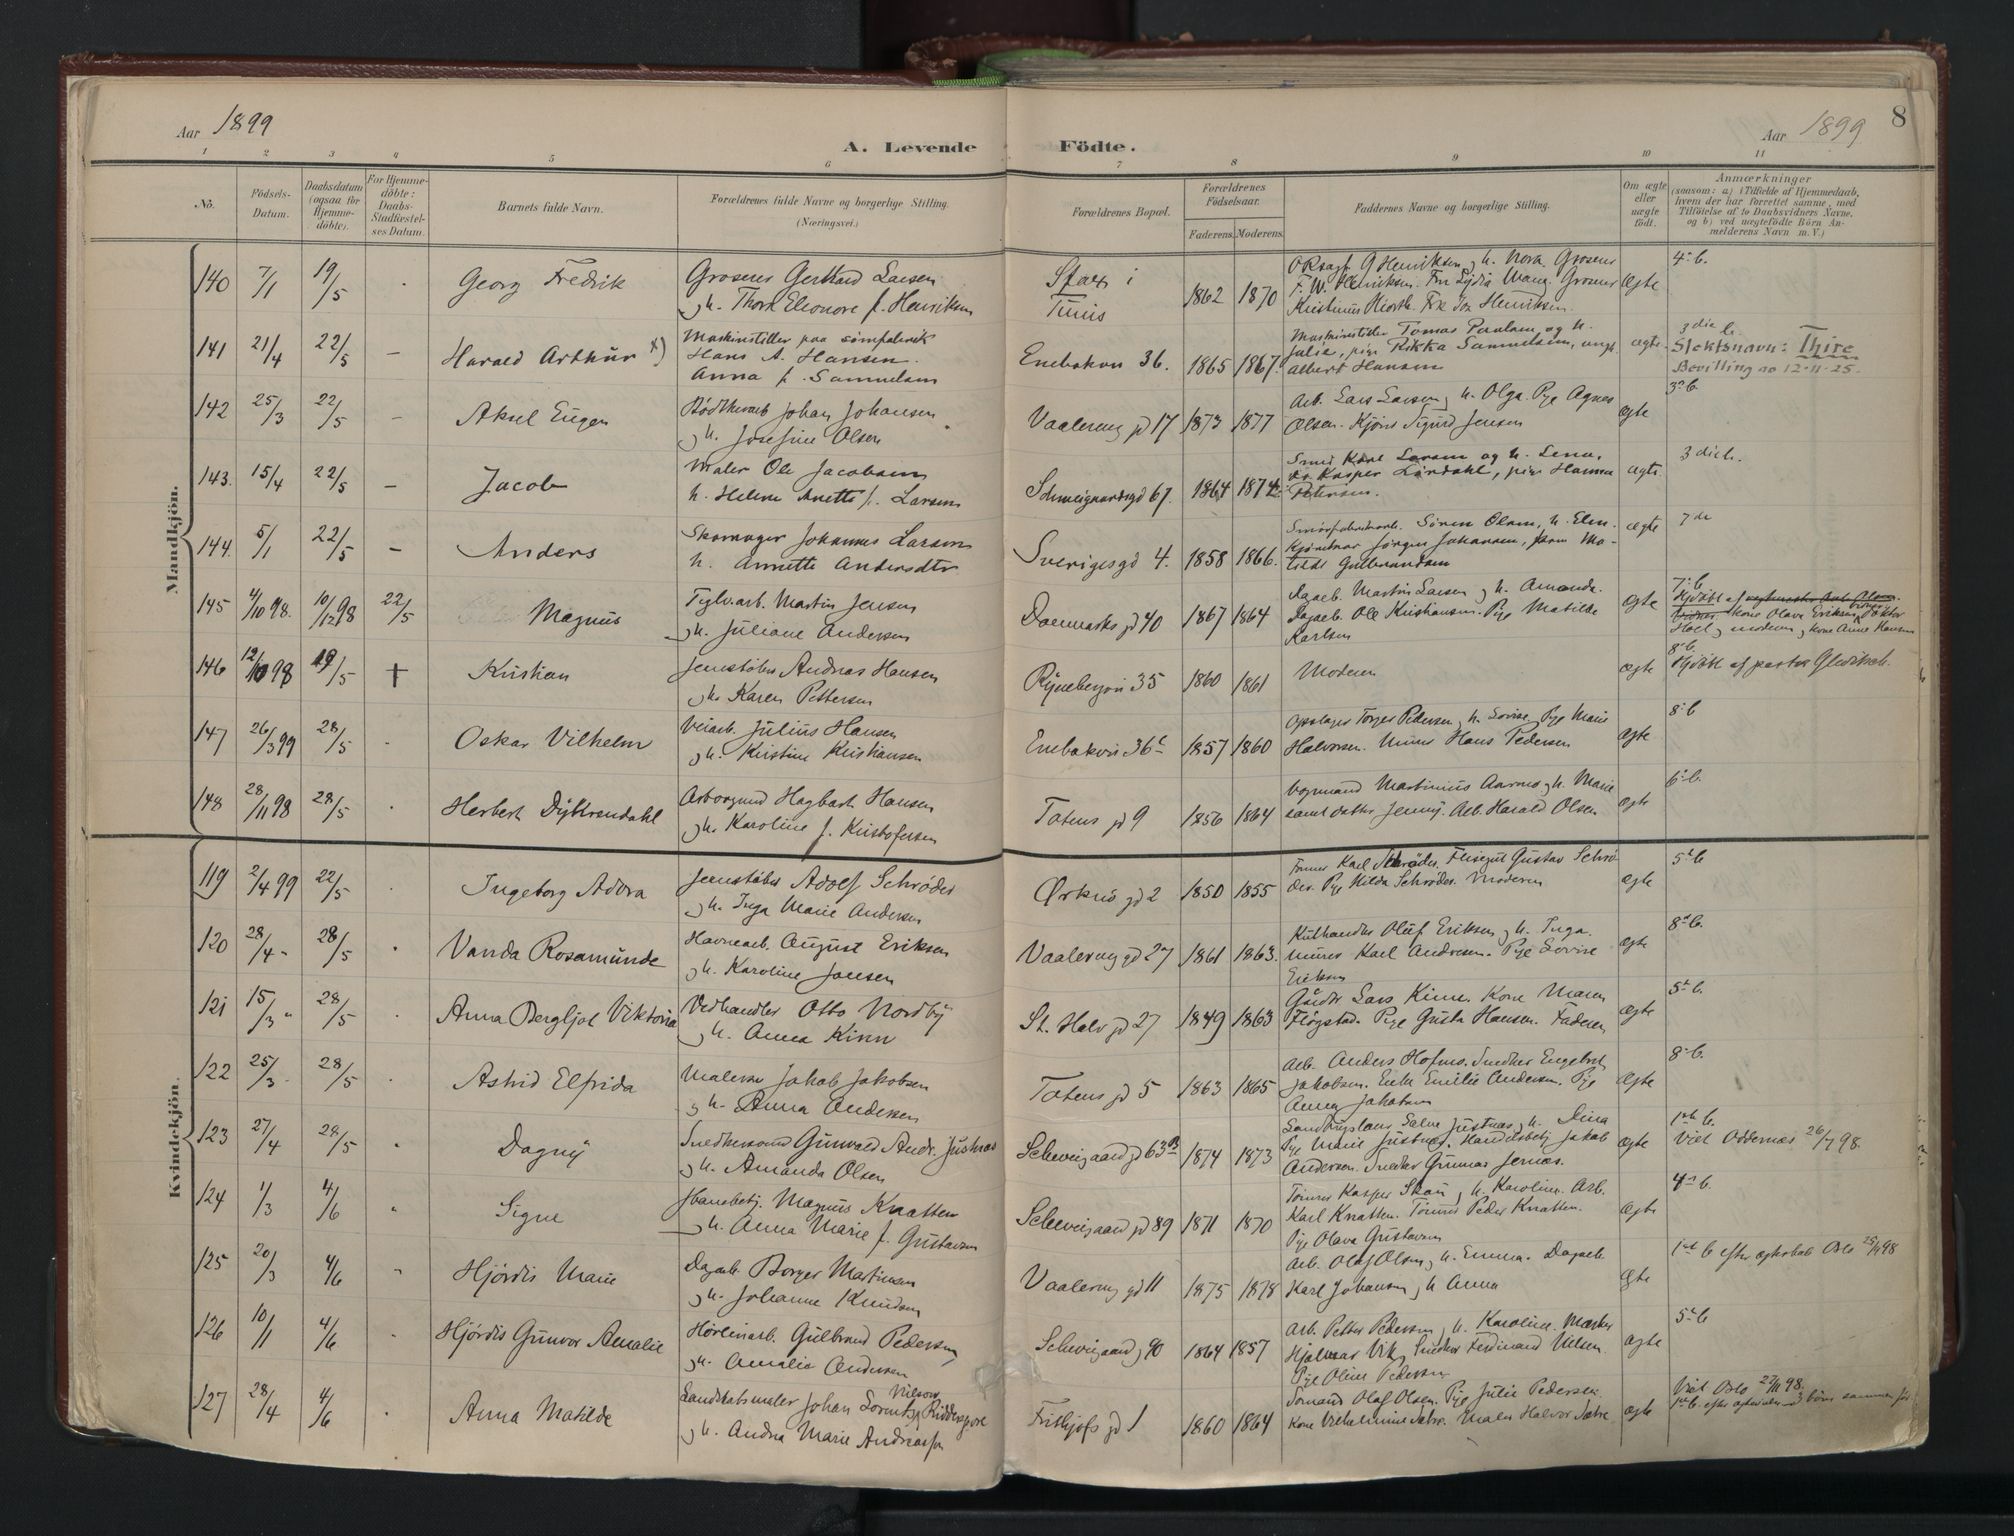 Aar 1899
A. Levende Födte.
Aar 1899
8
1 2 3 4 5 6 7 8 9 10 11
No.
Födsels-
Datum.
Daabsdatum
(ogsaa for
Hjemme-
döbte).
For Hjemme-
döbte:
Daabs-
Stadfæstel-
ses Datum.
Barnets fulde Navn.
Forældrenes fulde Navne og borgerlige Stilling.
(Næringsvei.)
Forældrenes Bopæl.
Forældrenes
Födselsaar.
Faderens. Moderens.
Faddernes Navne og borgerlige Stilling.
Om ægte
eller
uægte
födt.
Anmærkninger
(saasom: a) i Tilfælde af Hjemmedaab,
hvem der har forrettet samme, med
Tilföielse af to Daabsvidners Navne,
og b) ved uægtefödte Börn An-
melderens Navn m. V.)
Mandkjön.
140 7/1 19/5 Georg Fredrik
Groserer Gerhard Larsen
og h. Thora Eleonore f. Henriksen
Sfax i
Tunis
1862 1870
F. W. Henriksen. Fru Lydia Wang. Groserer
Ægte
4de b.
141 21/4 22/5 – Harald Arthur x)
Maskinstiller paa sömfabrik
Hans A. Hansen.
Anna f. Samuelsen
Enebakvn 36. 1865 1867.
Maskinstiller Tomas Paulsen og h.
Julie, pige Rikka Samuelsen, ungk.
Albert Hansen
ægte.
3die b.
Slektsnavn: Thire
Bevilling av 12-11-25.
142 25/3 22/5 – Aksel Eugen
Bødkerarb. Johan Johansen
og h. Josefine Olsen
Vaalereng gd 17 1873 1877
Arb. Lars Larsen og h. Olga. Pige Agnes
Olsen. Kjöre Sigurd Jensen
ægte
3die b.
143. 15/4 22/5 – Jacob
Maler Ole Jacobsen
h. Helene Anette f. Larsen
Schweigaardsgd 67. 1864 1874
Smed Karl Larsen og h. Lena,
Kasper Lördahl, pige Hanna
Petersen.
ægte.
3die b.
144. 5/1 22/5 – Anders
Skomager Johannes Larsen
h. Annette Andersdtr
Sverigesgd 4. 1858 1866.
Sören Olsen, h. Elen.
Jörgen Johansen,
Gulbrandsen
ægte
7de
145 4/10 98. 10/12 98 22/5 Magnus
Teglv.arb. Martin Jensen
og h. Juliane Andersen
Danmarks gd 40 1867 1864
Dagarb. Martin Larsen og h. Amanda.
Dagarb. Ole Kristiansen. Pige Matilde
Karlsen
ægte
7de b.
kone Olava Eriksen
146 12/10 98 19/5 + Kristian
Jernstöber Andreas Hansen
og h. Karen Pettersen
Ryenbergvn 35 1860 1861
Moderen
ægte
8de b.
Hjdöbt af pastor Gleditsch.
147 26/3 99 28/5 Oskar Vilhelm
Veiarb. Julius Hansen
og h. Kristine Kristiansen
Enebakvn 36c 1857 1860
Opsloger Torger Pedersen og h. Lovise. Pige Marie
Halvorsen. Murer Hans Pedersen
ægte
8de b
148 28/11 98 28/5 Herbert Dybvendahl
Hagbart Hansen
og h. Karoline f. Kristofersen
Totens gd 9 1856 1864
Vognmand Martinius Aarnes og h. Marie
samt datter Jenny. Arb. Harald Olsen
ægte
6te b.
Kvindekjön.
119 2/4 99 22/5 Ingeborg Addra
Jernstöber Adolf Schrøder
og h. Inga Marie Andersen
Ørknø gd 2 1850 1855
Former Karl Schröder. Gustav Schrö-
der. Pige Hilda Schröder. Moderen
ægte
5te b
120 28/4 – 28/5 Vanda Rosamunde
Havnearb. August Eriksen
og h. Karoline Jansen
Vaalereng gd 27 1861 1863.
Kulhandler Oluf Eriksen og h. Inga.
Murer Karl Andresen. Pige Lovise
Eriksen
ægte
8de b.
121 15/3 " 28/5 Anna Bergljot Viktoria
Vedhandler Otto Nordby
og h. Anna Kinn
St. Halv gd 27 1849 1863
Lars Kinne. Kone Maren
Flögstad. Pige Gusta Hansen. Faderen
ægte
5te b.
122 25/3 28/5 Astrid Elfrida
Malersv Jakob Jakobsen
og h. Anna Andersen
Totens gd 5 1863 1865
Arb. Anders Hofnes. Snedker Engebret
Jakobsen. Enke Emilie Andersen. Pige
Anna Jakobsen
Ægte
8de b.
123 27/4 28/5 Dagny
Snedkersvend Gunvald Andr. Justnæs
og h. Amanda Olsen
Schweigaard gd 63B 1874 1873
Justnæs og h. Dina
Pige Marie Justnæs. Handelsbetj Jakob
Andersen. Snedker Gunnar Jernæs.
ægte
1ste b.
Viet Oddernæs 26/7 98.
124 1/3 4/6 Signe
Magnus Knatten
og h. Anna Marie f. Gustavsen
Schweigaard gd 89 1871 1870
Tömrer Kasper Skau og h. Karoline. Arb.
Karl Knatten. Tömrer Peder Knatten.
Pige Olava Gustavsen
ægte
4de b.
125 20/3 4/6 Hjördis Marie
Dagarb. Borger Martinsen
og h. Johanne Knudsen
Vaalereng gd 11 1875 1878
Arb. Olaf Olsen og h. Emma. Dagarb.
Karl Johansen og h Anna
Ægte
1ste b efter ægteskab Oslo 25/11 98
126 10/1 4/6 Hjördis Gunvor Amalie
Gulbrand Pedersen
og h. Amalie Andersen
Schweigaard g 90 1864 1857
Arb. Petter Pedersen og h. Karoline. Maskr
Hjalmar Vik. Snedker Ferdinand Nilsen.
Pige Oline Pedersen
ægte
5te b
127 28/4 4/6 Anna Matilde
Landskabsmaler Johan Lorents Nilsen Ridderspore
og h. Andrea Marie Andreassen
Frithjofs gd 1 1860 1864
Olaf Olsen. Pige Julie Pedersen.
Kone Vilhelmine Sætre. Maler Halvor Sætre
ægte
Viet Oslo 27/11 98.